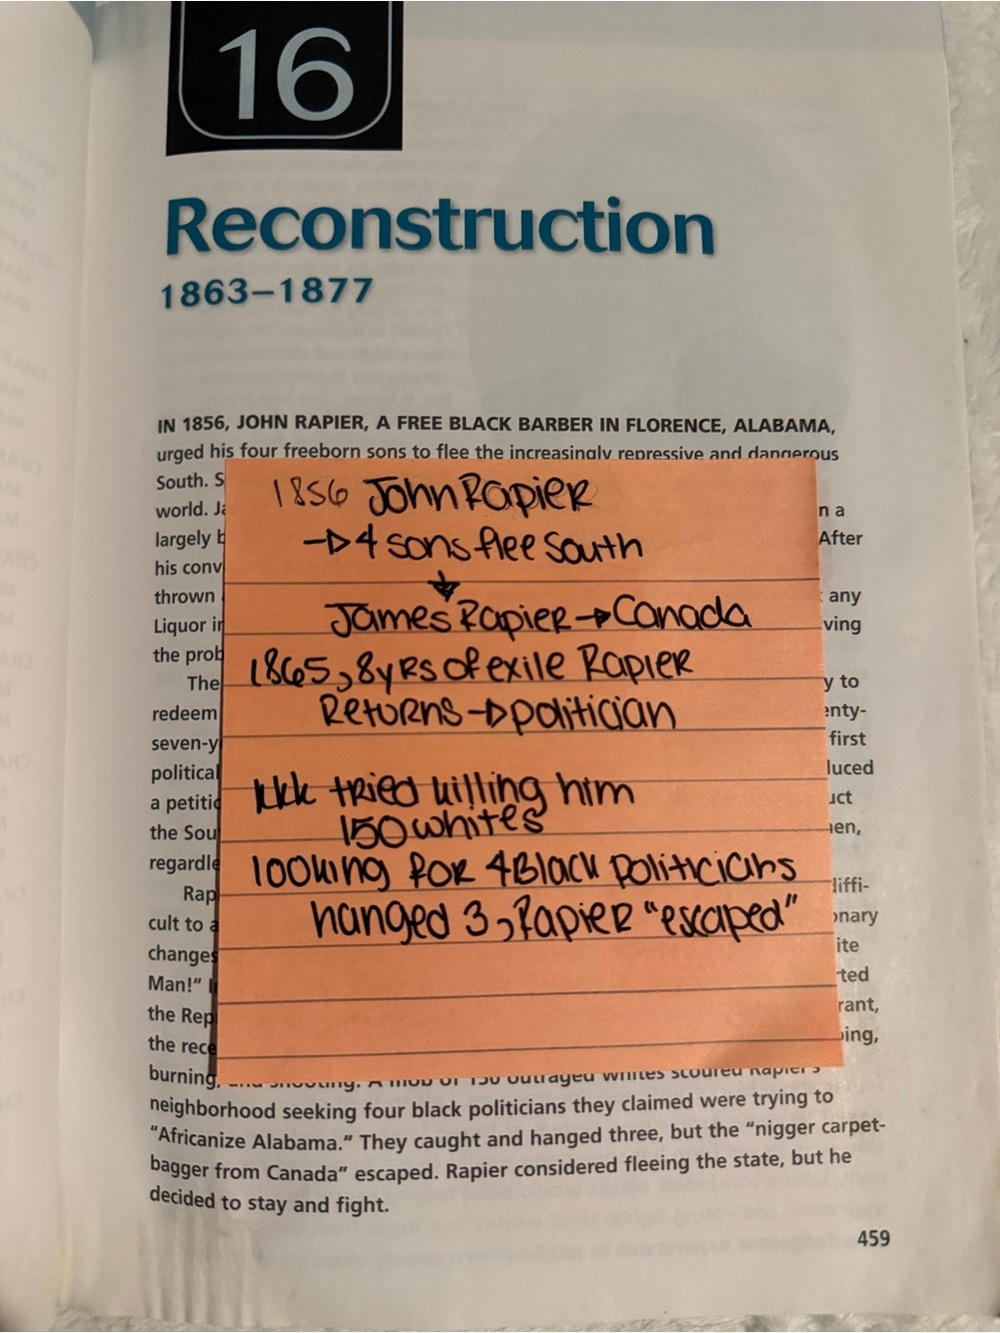 16
Reconstruction
1863–1877
IN 1856, JOHN RAPIER, A FREE BLACK BARBER IN FLORENCE, ALABAMA,
urged his four freeborn sons to flee the increasingly repressive and dangerous
South. S
world. Ja
n a
largely b
After
his conv
thrown
any
Liquor in
ving
the prob
The
y to
redeem
enty-
seven-y
first
political
luced
a petitio
uct
the Sou
en,
regardle
Rap
diffi-
cult to a
onary
changes
ite
Man!" I
rted
the Rep
rant,
the rece
ping,
1856 John Rapier
→ 4 sons flee South
↓
James Rapier → Canada
1865, 8 yrs of exile Rapier
Returns → politician
kkk tried killing him
150 whites
looking for 4 Black politicians
hanged 3, Rapier "escaped"
burning, and shooting. A mob of 150 outraged whites scoured Rapier's
neighborhood seeking four black politicians they claimed were trying to
"Africanize Alabama." They caught and hanged three, but the "nigger carpet-
bagger from Canada" escaped. Rapier considered fleeing the state, but he
decided to stay and fight.
459